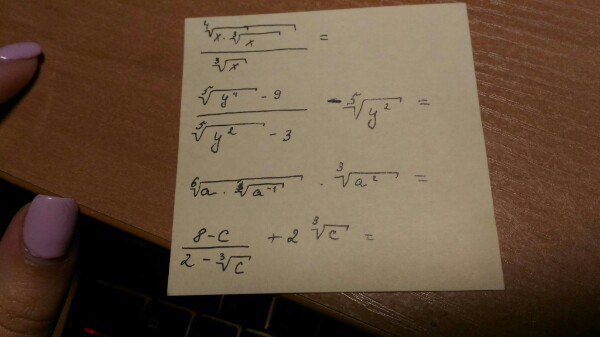 \frac{\sqrt[4]{x \cdot \sqrt[3]{x}}}{\sqrt[3]{x}} =
\frac{\sqrt[5]{y^4} - 9}{\sqrt[5]{y^2} - 3} - \sqrt[5]{y^2} =
\sqrt[6]{a \cdot \sqrt{a^{-1}}} \cdot \sqrt[3]{a^2} =
\frac{8 - c}{2 - \sqrt[3]{c}} + 2\sqrt[3]{c} =